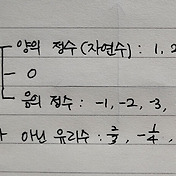 양의 정수 (자연수) : 1, 2
0
음의 정수 : -1, -2, -3,
아닌 유리수 : 2/3, -1/4,